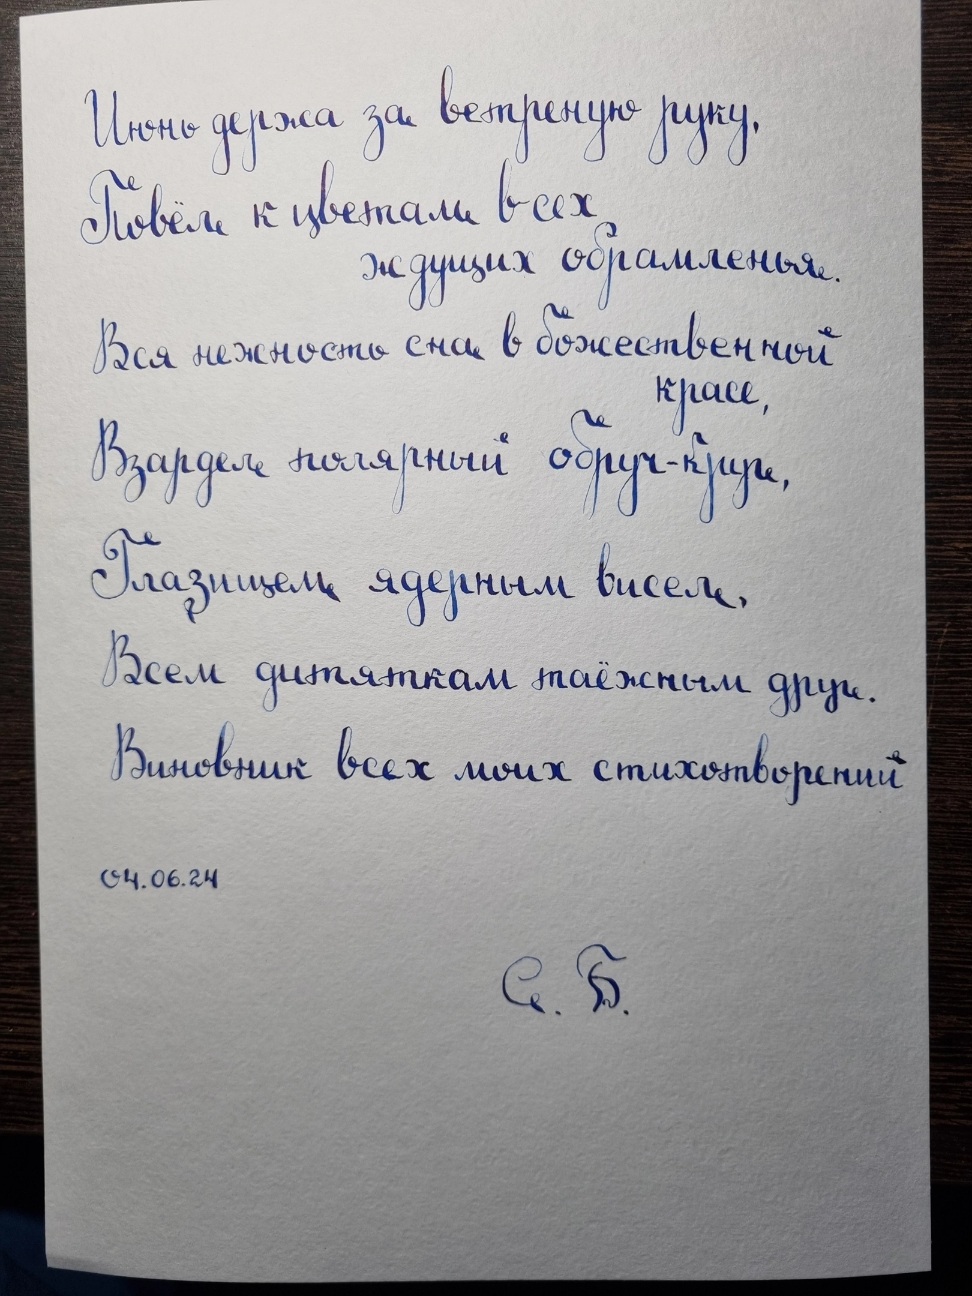 Июнь держа за ветреную руку,
Повёл к цветам всех
ждущих обрамленья.
Вся нежность сна в божественной
красе,
Взардел полярный обруч-круг,
Глазищем ядерным висел,
Всем дитяткам таёжным друг.
Виновник всех моих стихотворений
04.06.24
С. Б.